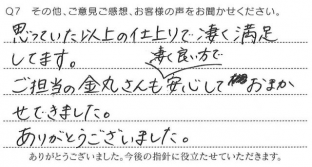 Q7 その他、ご意見ご感想、お客様の声をお聞かせください。
思っていた以上の仕上りで凄く満足
してます。
凄く良い方で
ご担当の金丸さんも安心しておまか
せできました。
ありがとうございました。
ありがとうございました。今後の指針に役立たせていただきます。